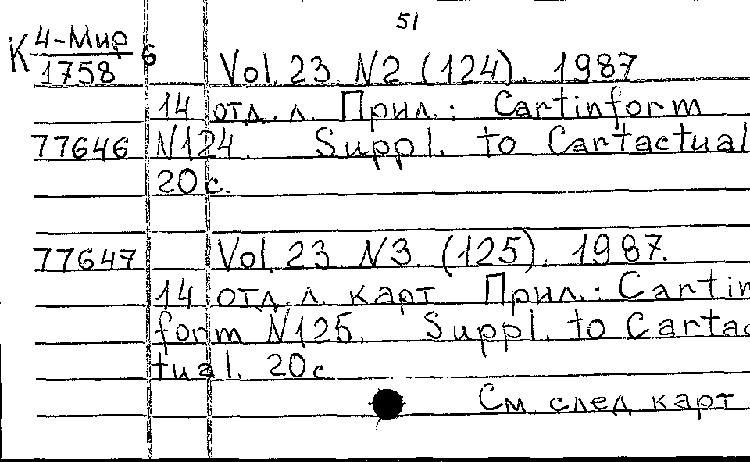 51
К 4-Мир 6
1758
Vol. 23 N2 (124). 1987
14 отд. л. Прил.: Cartinform
77646 N124. Suppl. to Cartactual
20 с.
77647 Vol. 23 N3 (125). 1987.
14 отд. л. карт Прил.: Cartin
form N125. Suppl. to Cartac
tual. 20 с
См след карт